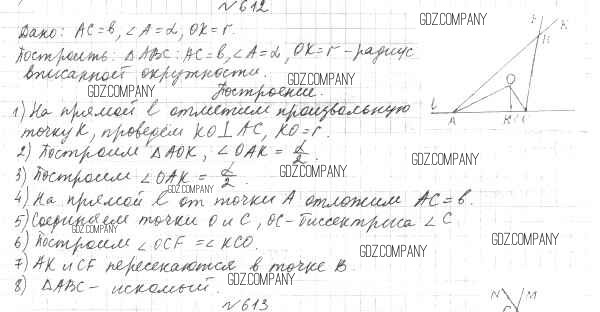 №612
Дано: AC=b, ∠A=α, OK=r.
GDZ.COMPANY
Построить: △ABC: AC=b, ∠A=α, OK=r - радиус
вписанной окружности.
GDZ.COMPANY
GDZ.COMPANY
Построение.
1) На прямой l отметим произвольную
точку K, проведём KO⊥AC, KO=r.
2) Построим △AOK, ∠OAK = α/2.
GDZ.COMPANY
3) Построим ∠OAK = α/2.
GDZ.COMPANY
GDZ.COMPANY
4) На прямой l от точки A отложим AC=b.
5) Соединяем точки O и C, OC - биссектриса ∠C
GDZ.COMPANY
6) Построим ∠OCF = ∠KCO.
GDZ.COMPANY
GDZ.COMPANY
7) AK и CF пересекаются в точке B.
GDZ.COMPANY
8) △ABC - искомый.
№613
l
A
O
K
C
F
K
B
N
M